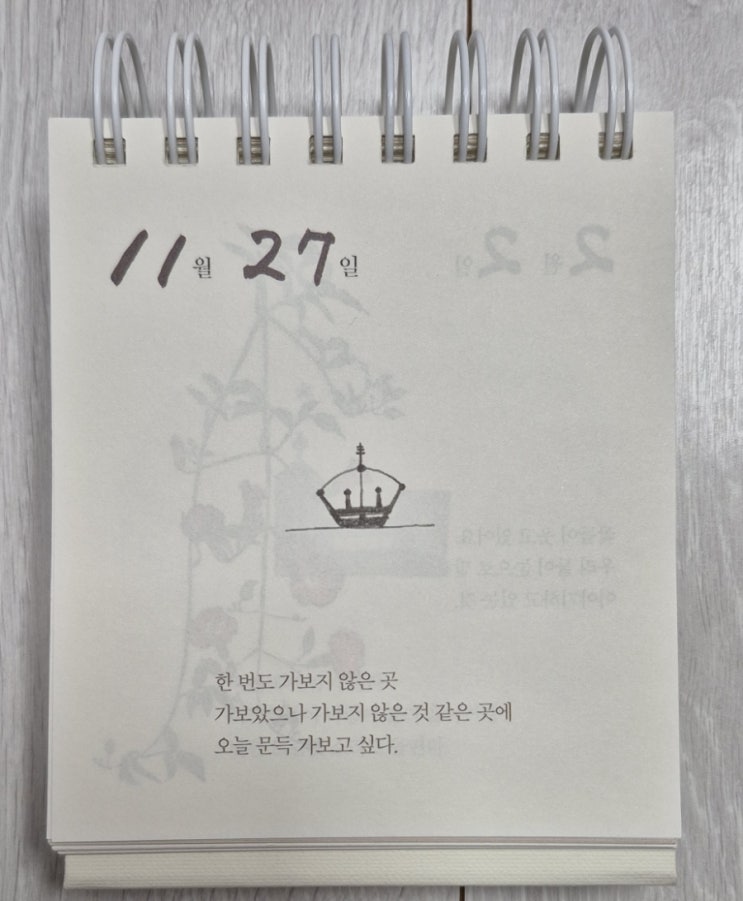 11월 27일
한 번도 가보지 않은 곳
가보았으나 가보지 않은 것 같은 곳에
오늘 문득 가보고 싶다.